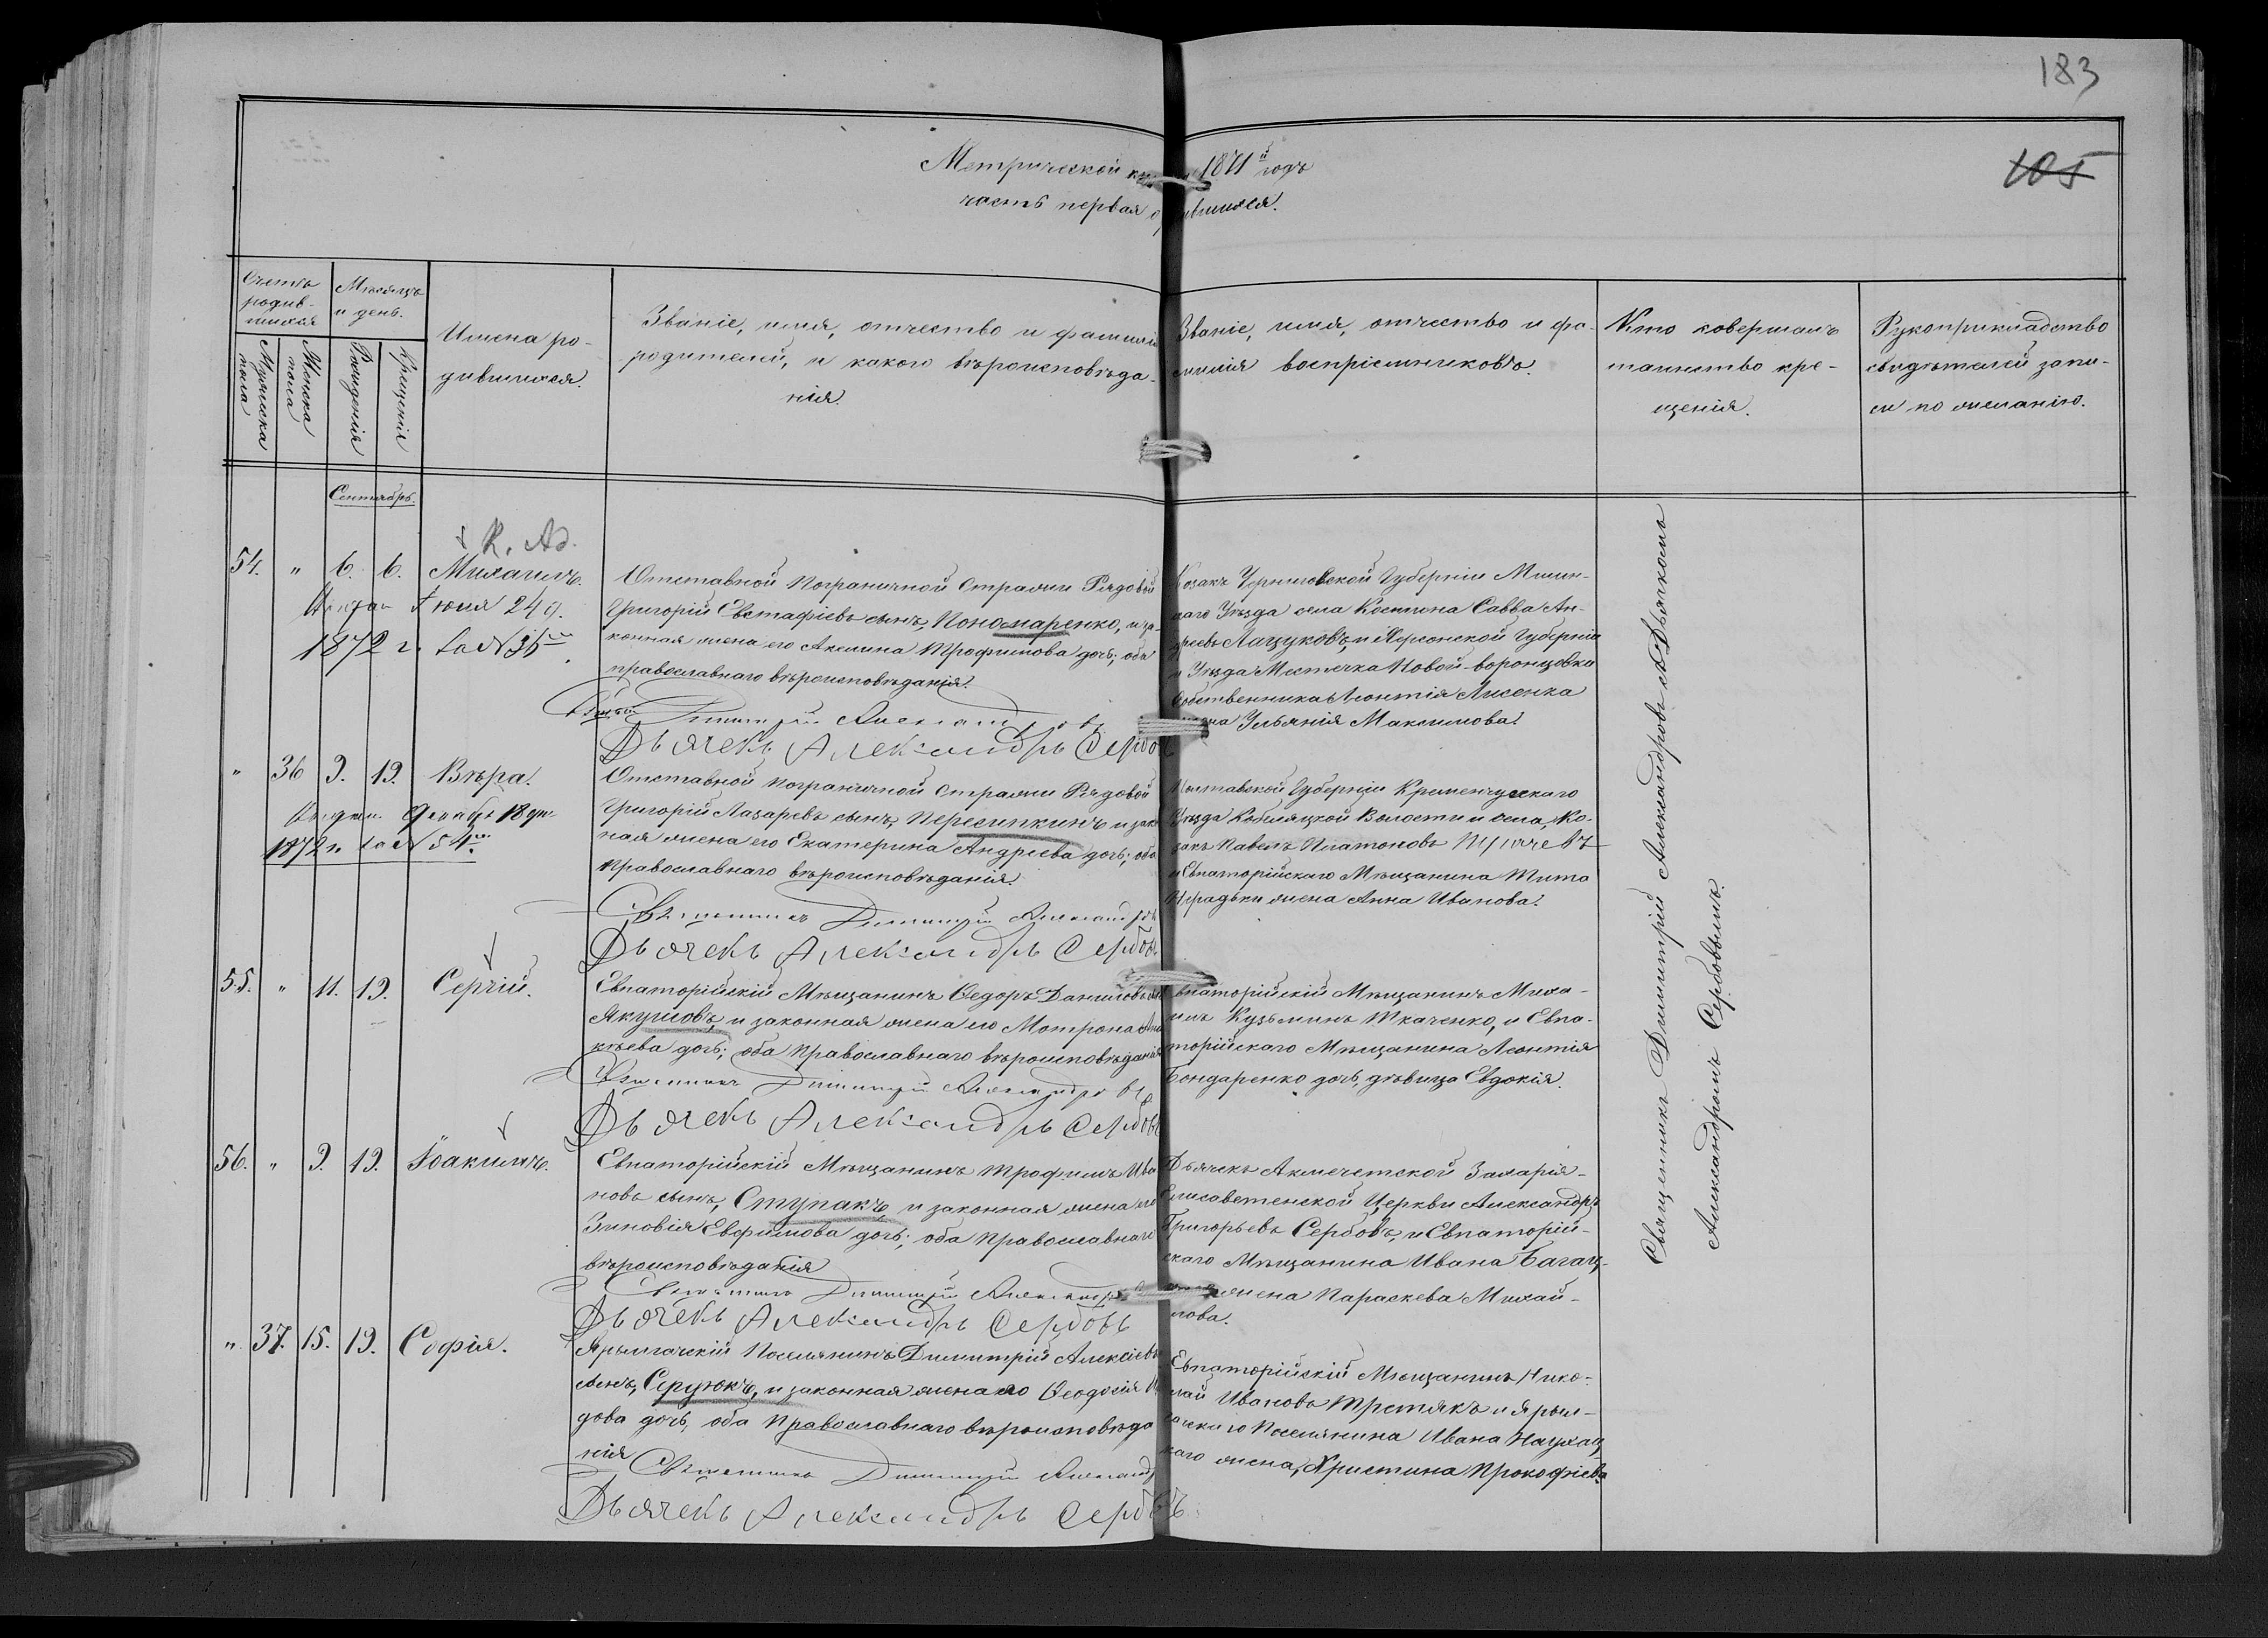 183
105
Метрической 1871й годъ
часть первая о
Счетъ
родив-
шихся
Мѣсяцъ
и день.
Мужеска
пола
Женска
пола
Рожденія
Крещенія
Имена ро-
дившихся.
Званіе, имя, отчество и фамилія
родителей, и какого вѣроисповѣда-
нія.
Званіе, имя, отчество и фа-
милія воспріемниковъ.
Кто совершалъ
таинство кре-
щенія.
Рукоприкладство
свидѣтелей запи-
си по желанію.
Сентябрь.
К. Ад.
54. " 6. 6. Михаилъ.
Іюня 24 д.
1872 г. за №
Отставной пограничной стражи Рядовой
Григорій Евстафіевъ сынъ, Пономаренко, и за-
конная жена его Акилина Трофимова дочь; оба
православнаго вѣроисповѣданія.
Димитрій Александровъ
Дьячекъ Александръ Сербовъ
Козакъ Черниговской Губерніи
Уѣзда села Костина Савва Ан-
дреевъ Лащуковъ, и Херсонской Губерніи
и Уѣзда Мѣстечка Новой-воронцовки
Собственника Леонтія Лисенка
жена Ульянія Максимова.
" 36 9. 19. Вѣра.
Декабр. 18 дн.
1872 г. за № 54
Отставной пограничной стражи Рядовой
Григорій Лазаревъ сынъ, Пересипкинъ и закон-
ная жена его Екатерина Андріева дочь; оба
Православнаго вѣроисповѣданія.
Священникъ Димитрій Александровъ
Дьячекъ Александръ Сербовъ
Полтавской Губерніи Кременчугскаго
Уѣзда Кобеляцкой Волости и села, Ко-
закъ Павелъ Платоновъ
и Евпаторійскаго Мѣщанина Тита
Нерадьки жена Анна Иванова.
55. " 11. 19. Сергій.
Евпаторійскій Мѣщанинъ Ѳедоръ Даниловъ
Якушовъ, и законная жена его Мотрона
кѣева дочь; оба православнаго вѣроисповѣданія
Священникъ Димитрій Александровъ
Дьячекъ Александръ Сербовъ
Евпаторійскій Мѣщанинъ Миха-
илъ Кузьминъ Ткаченко, и Евпа-
торійскаго Мѣщанина Леонтія
Бондаренко дочь, дѣвица Евдокія.
56. " 9. 19. Іоакимъ.
Евпаторійскій Мѣщанинъ Трофимъ Ива
новъ сынъ, Ступакъ, и законная жена его
Зиновія Евфимова дочь; оба православнаго
вѣроисповѣданія
Священникъ Димитрій Александровъ
Дьячекъ Александръ Сербовъ
Дьячекъ Акмечетской Захарія-
Елисаветенской Церкви Александръ
Григорьевъ Сербовъ, и Евпаторій-
скаго Мѣщанина Ивана
жена Параскева Михай-
лова.
" 37. 15. 19. Софія.
Ярылгачскій Поселянинъ Димитрій Алексіевъ
сынъ, Сердюкъ, и законная жена его Ѳеодосія
дова дочь, оба Православнаго вѣроисповѣда
нія
Священникъ Димитрій Александр
Дьячекъ Александръ Сербовъ
Евпаторійскій Мѣщанинъ Нико-
лай Ивановъ Третякъ и Ярыл-
гачскаго Поселянина Ивана
каго жена, Христина Прокофіева
Священникъ Димитрій Александровъ съ Дьячкомъ
Александромъ Сербовымъ.